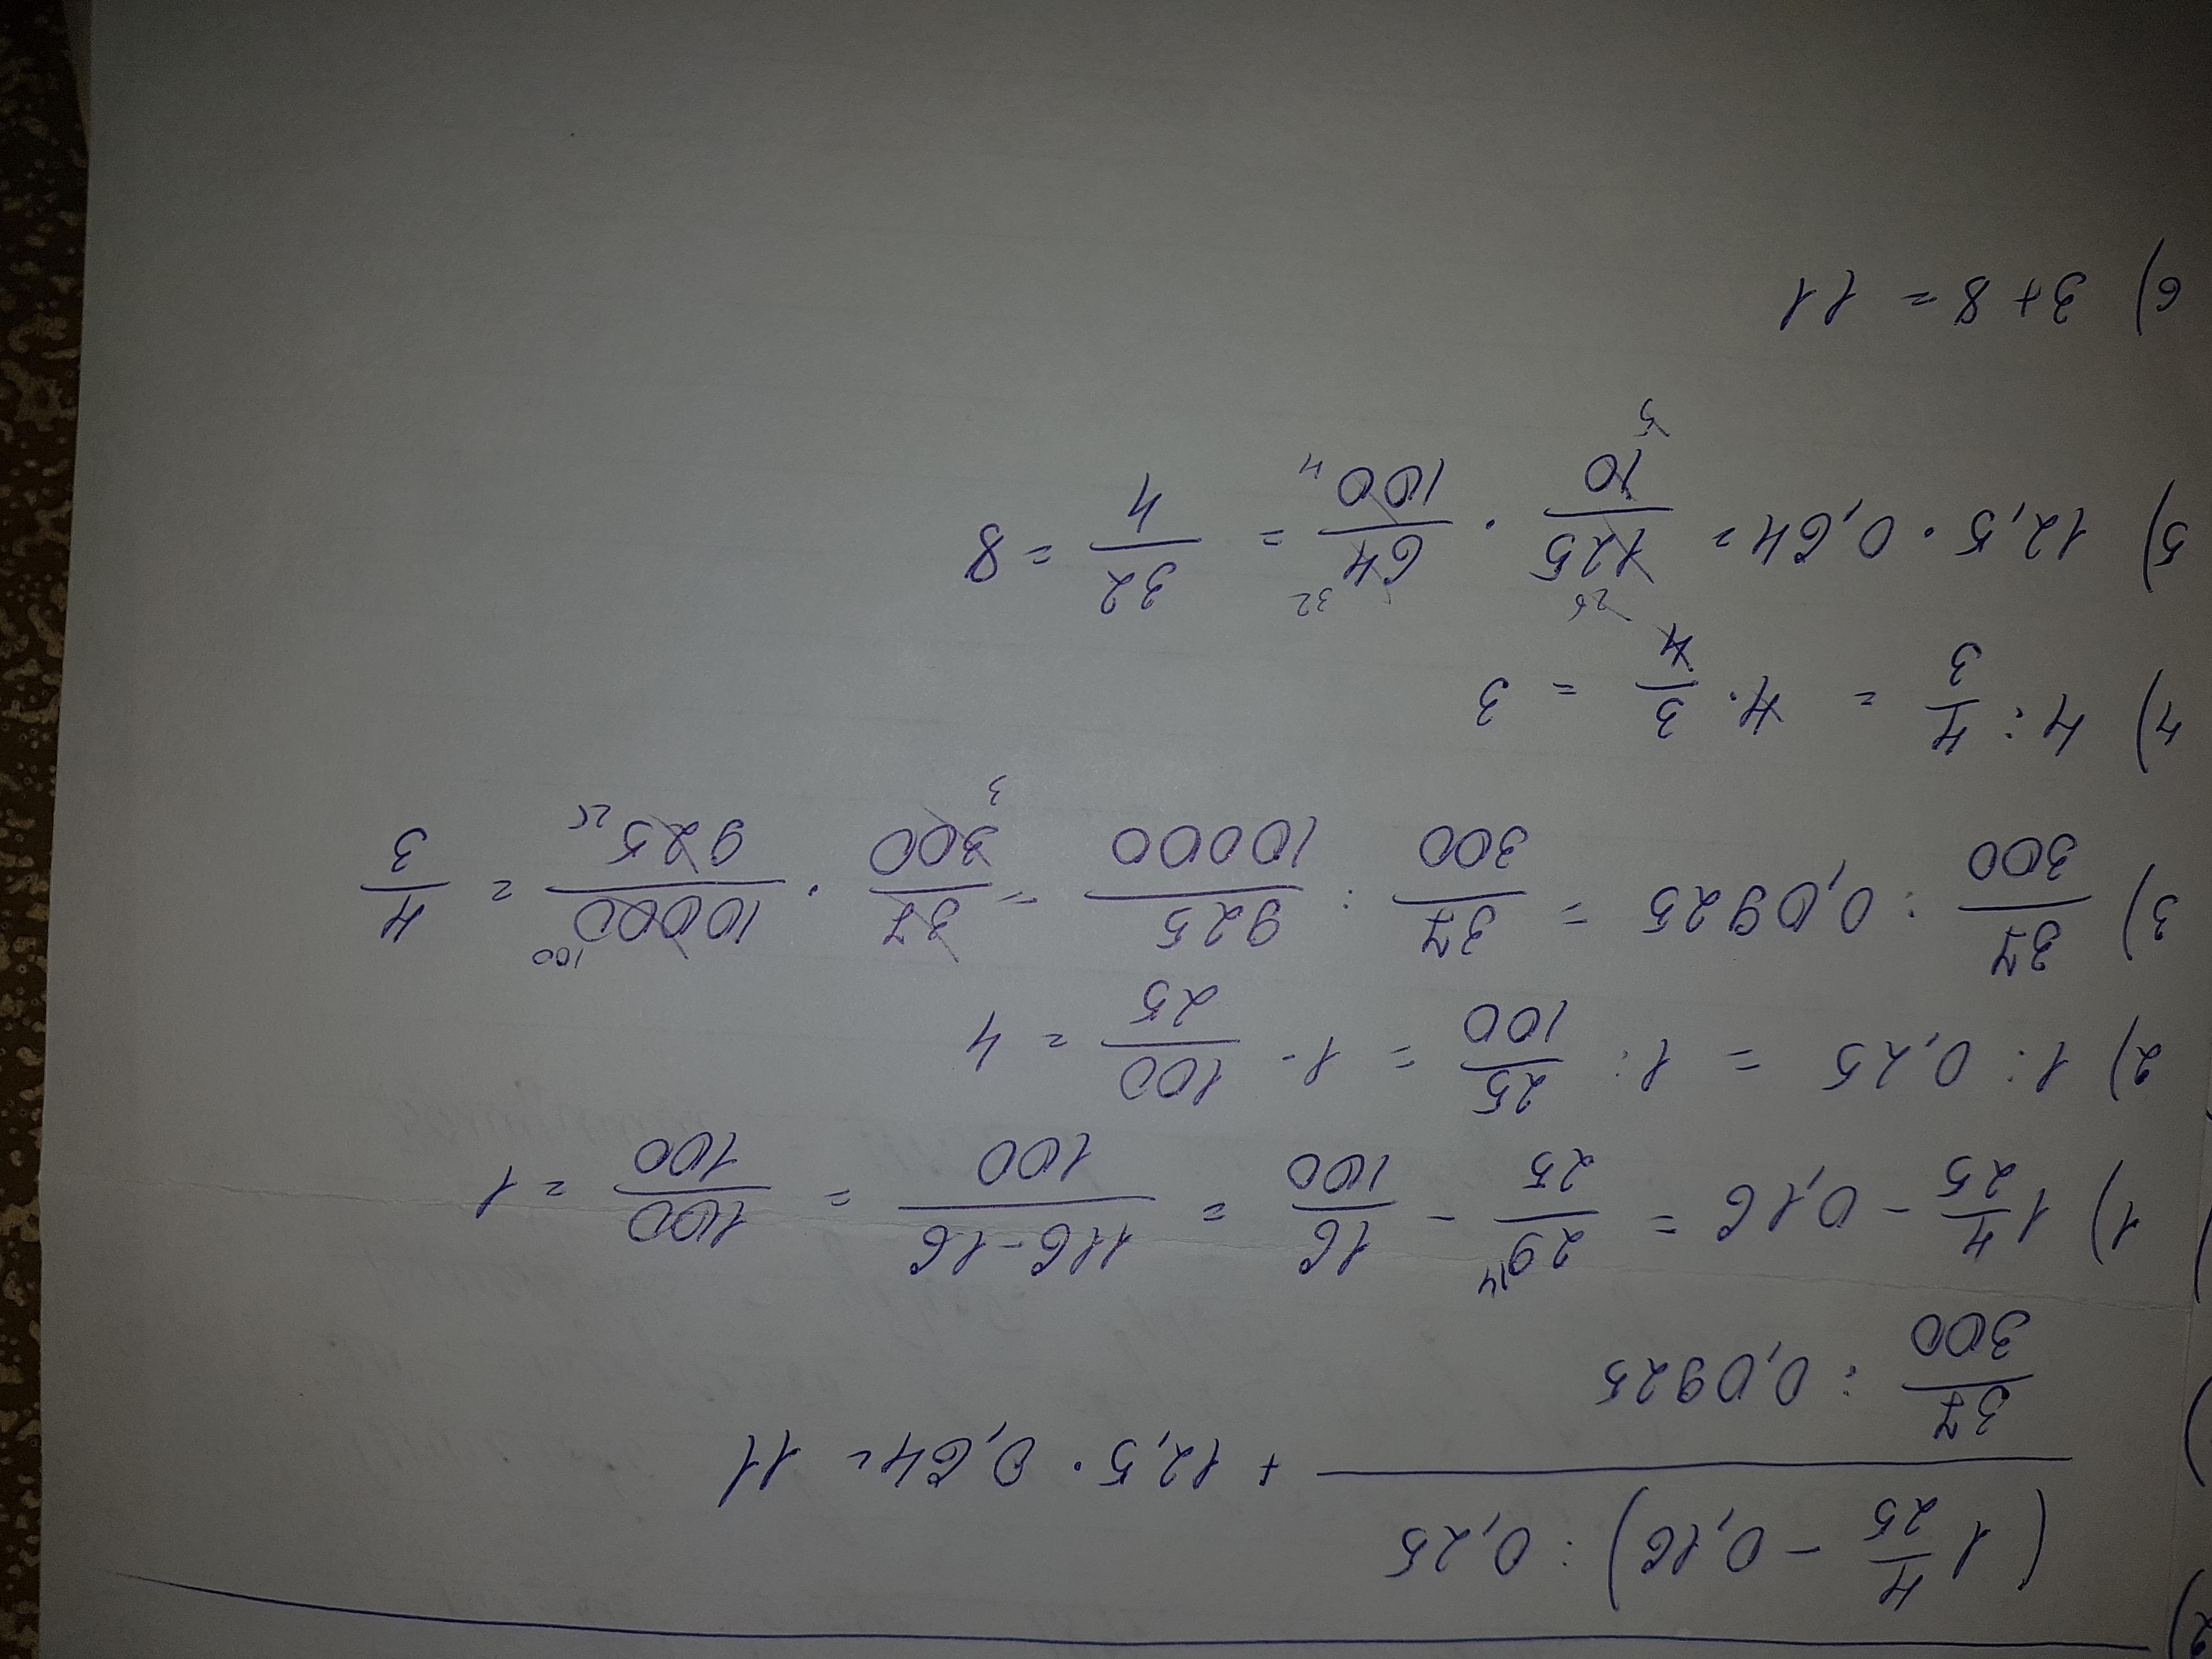 2)
(1 4/25 - 0,16) : 0,25
+ 12,5 · 0,64 = 11
37/300 : 0,0925
1) 1 4/25 - 0,16 = 29/25 - 16/100 = 116-16/100 = 100/100 = 1
2) 1 : 0,25 = 1 : 25/100 = 1 · 100/25 = 4
3) 37/300 : 0,0925 = 37/300 : 925/10000 = 37/300 3 · 10000 100/925 25 = 4/3
4) 4 : 4/3 = 4 · 3/4 = 3
5) 12,5 · 0,64 = 125 25/10 5 · 64 32/100 4 = 32/4 = 8
6) 3 + 8 = 11